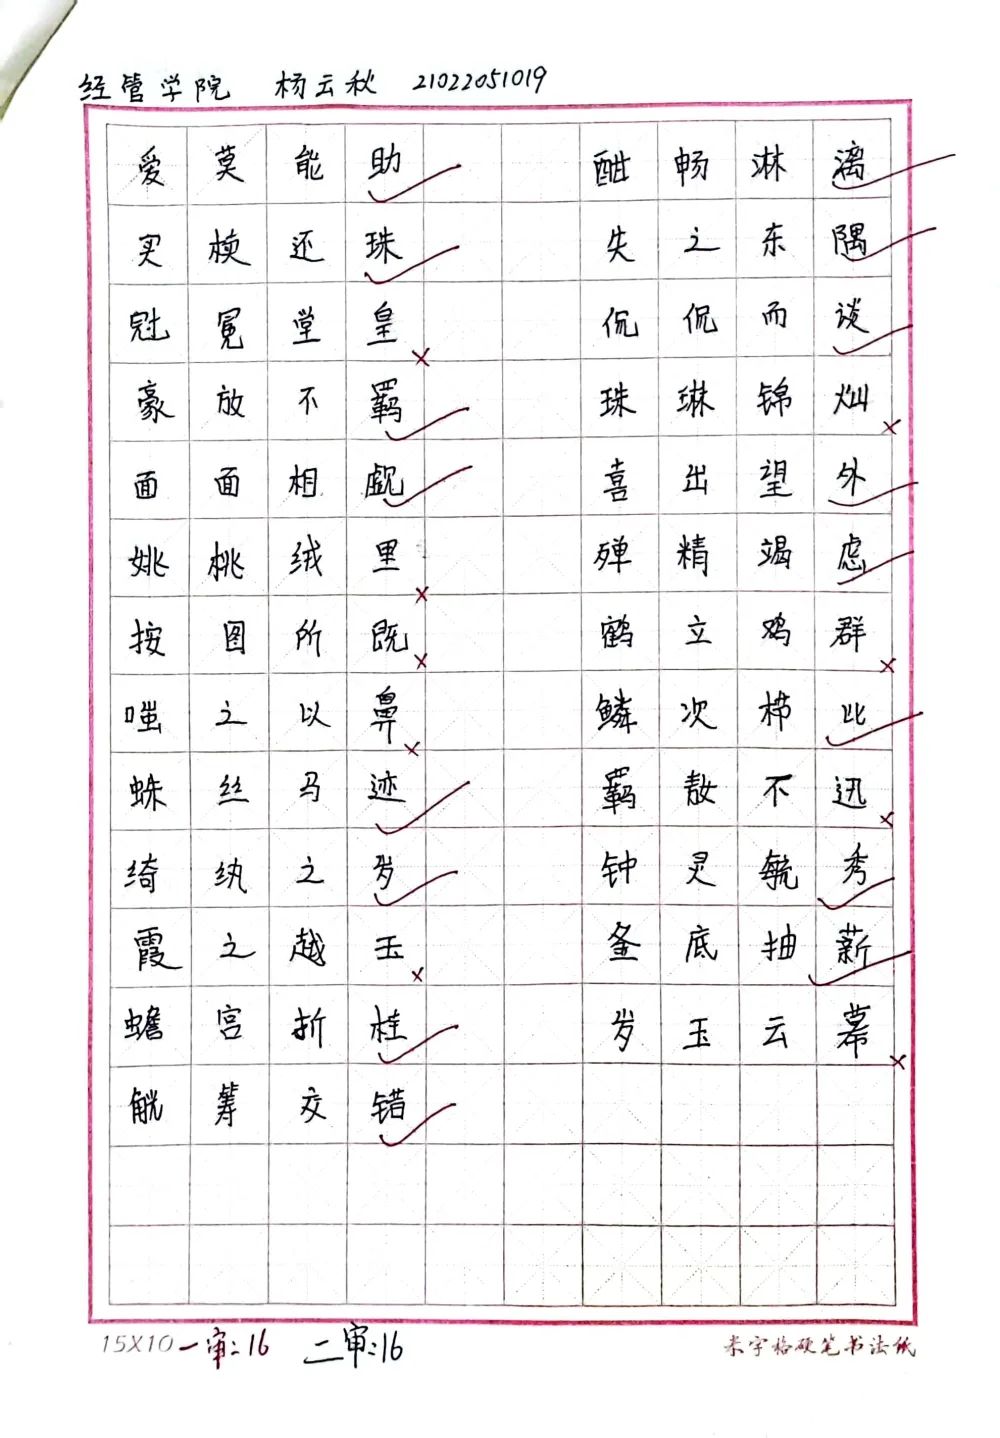 经管学院 杨云秋 21022051019
爱莫能助 酣畅淋漓
买椟还珠 失之东隅
冠冕堂皇 侃侃而谈
豪放不羁 珠琳锦灿
面面相觑 喜出望外
姚桃绒里 殚精竭虑
按图所既 鹤立鸡群
嗤之以鼻 鳞次栉比
蛛丝马迹 羁敖不迅
绮纨之岁 钟灵毓秀
霞之越玉 釜底抽薪
蟾宫折桂 岁玉云幕
觥筹交错
15X10 一审:16 二审:16 米字格硬笔书法纸